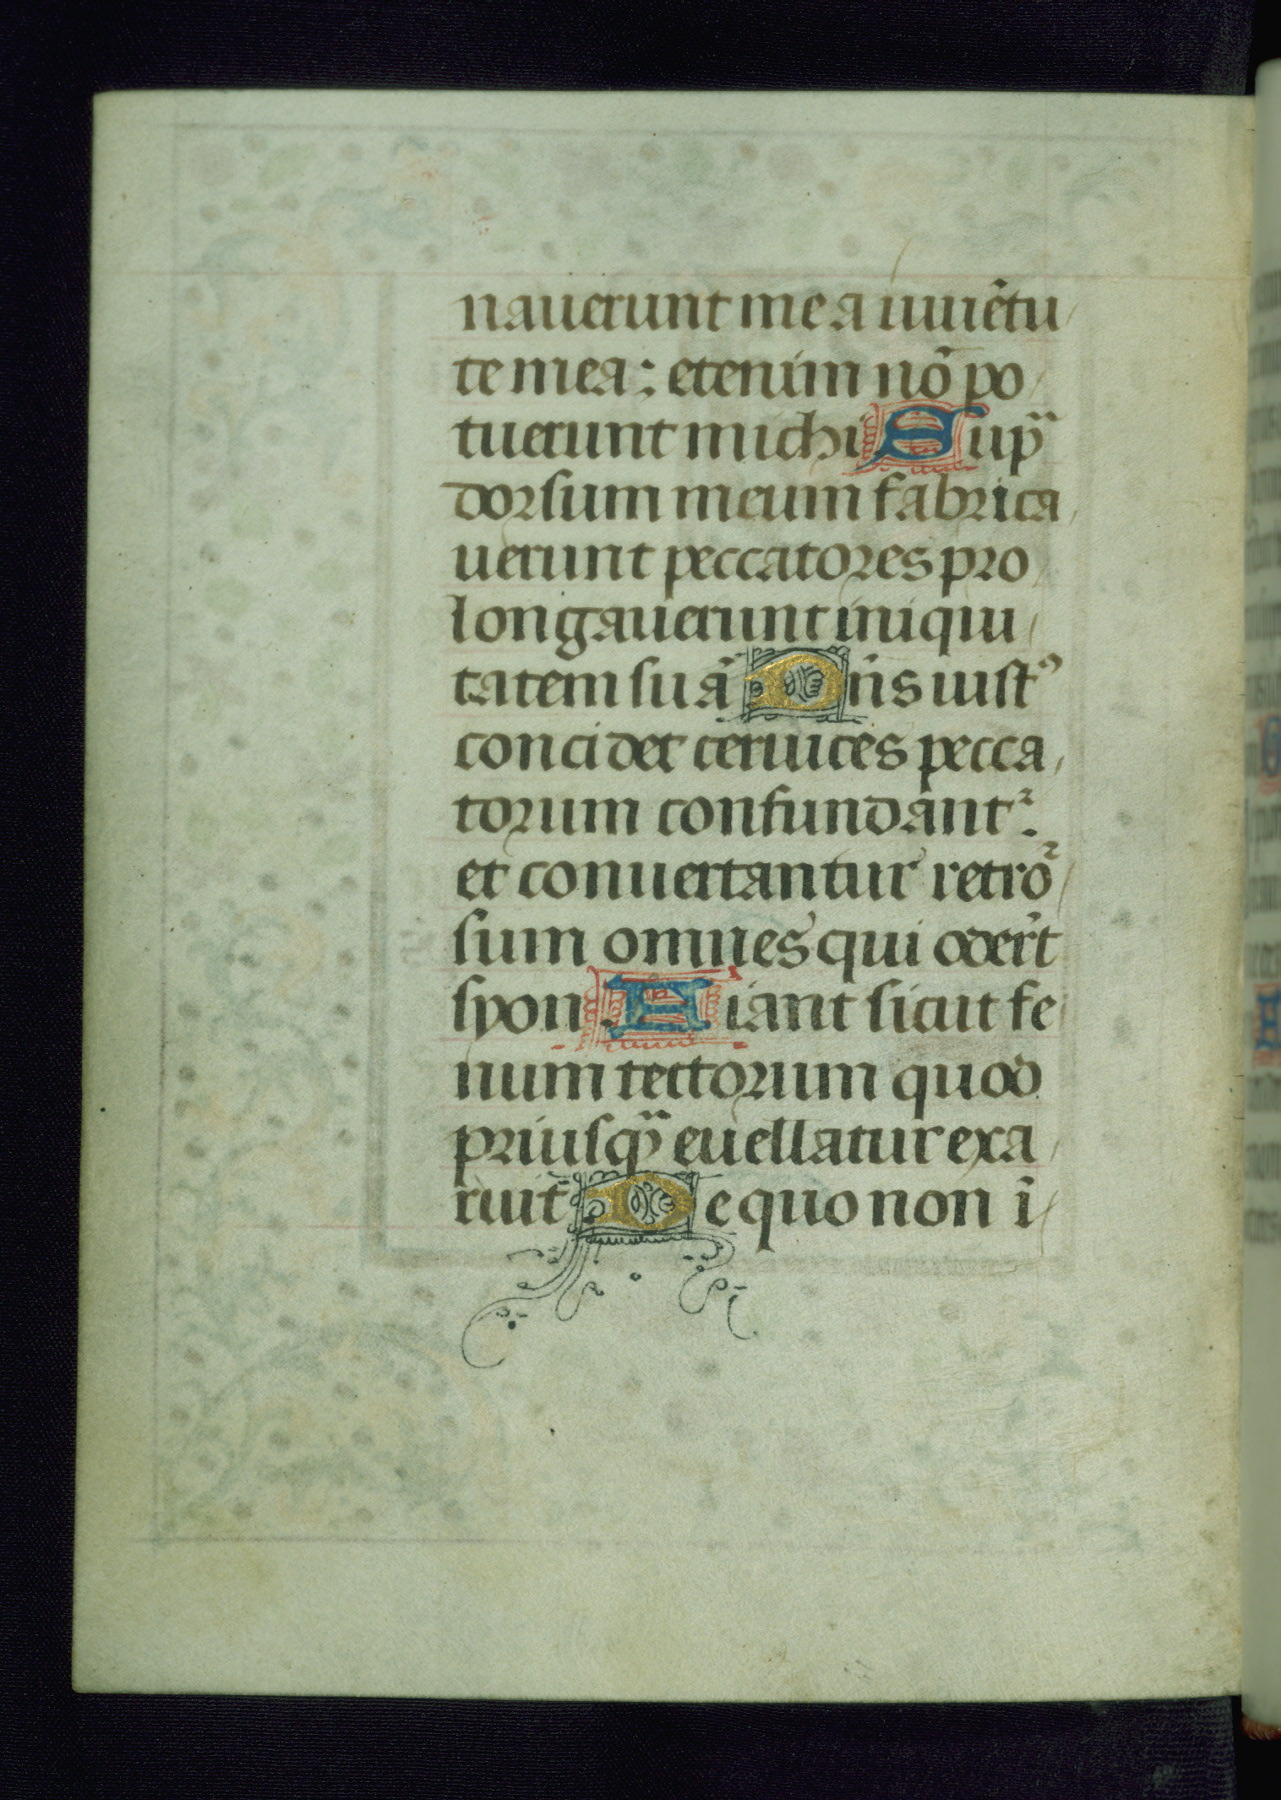 nauerunt me a iuuẽtu
te mea : etenim nõ po
tuerunt michi Sup̃
dorsum meum fabrica
uerunt peccatores pro
longauerunt iniqui
tatem suã Dñs iustꝰ
concidet ceruices pecca
torum confundantᷣ.
et conuertantur retrõ
sum omnes qui oder̃t
syon. Fiant sicut fe
num tectorum quod
priusq̃ euellatur exa
ruit̃ De quo non ĩ